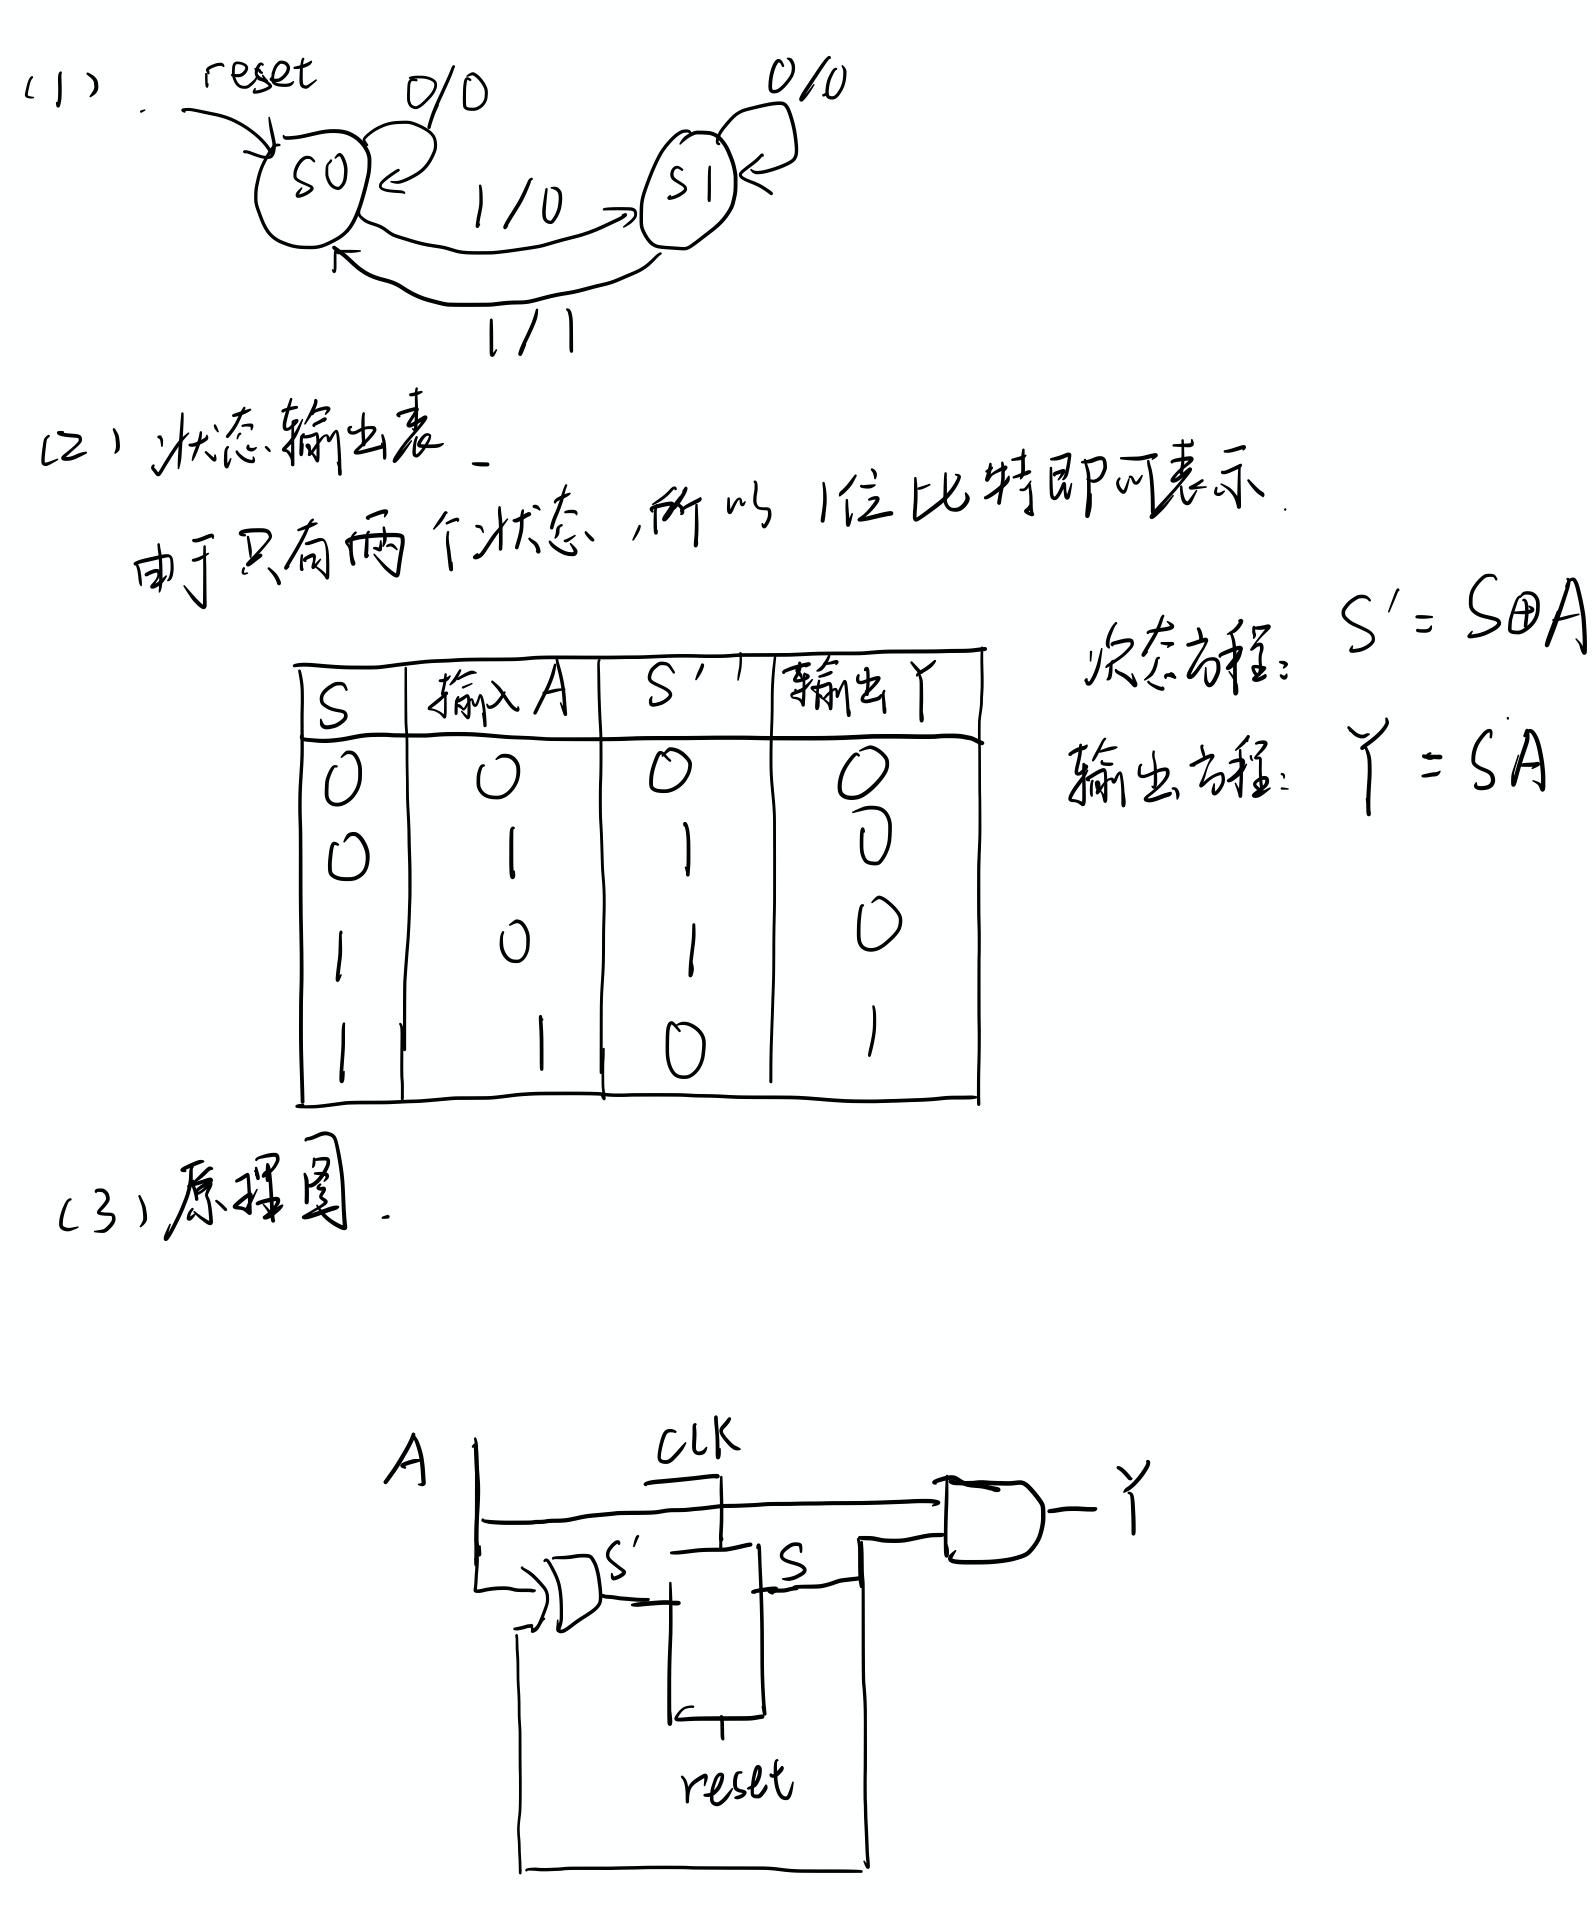 (1).
reset
0/0
0/0
S0
S1
1/0
1/1
(2) 状态输出表.
由于只有两个状态,所以1位比特即可表示.
次态方程: S' = S⊕A
输出方程: Y = SA
S 输入A S' 输出Y
0 0 0 0
0 1 1 0
1 0 1 0
1 1 0 1
(3) 原理图.
A
CLK
Y
S'
S
reset